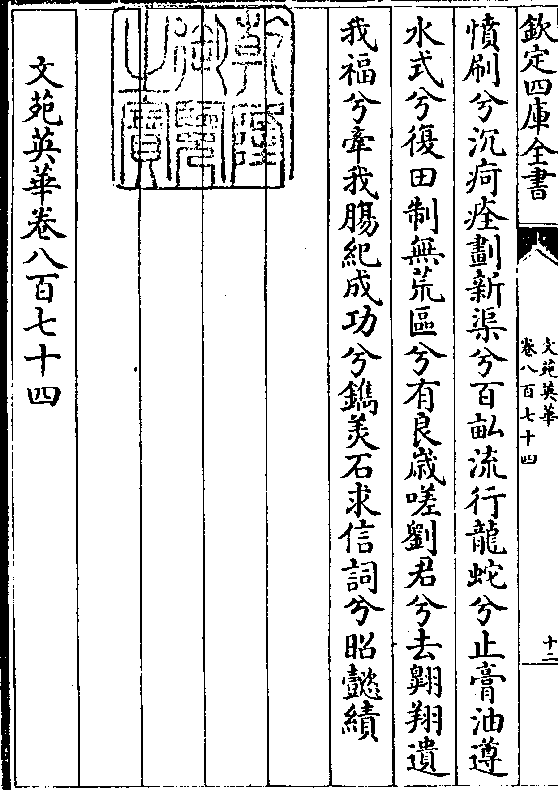 欽定四庫全書
文苑英華
卷八百七十四
十二
憤刷兮沉疴痊劃新渠兮百畆流行龍蛇兮止膏油遵
水式兮復田制無荒區兮有良歳嗟劉君兮去翺翔遺
我福兮牽我腸紀成功兮鐫羙石求信詞兮昭懿績
乾隆
御覽
之寶
文苑英華卷八百七十四